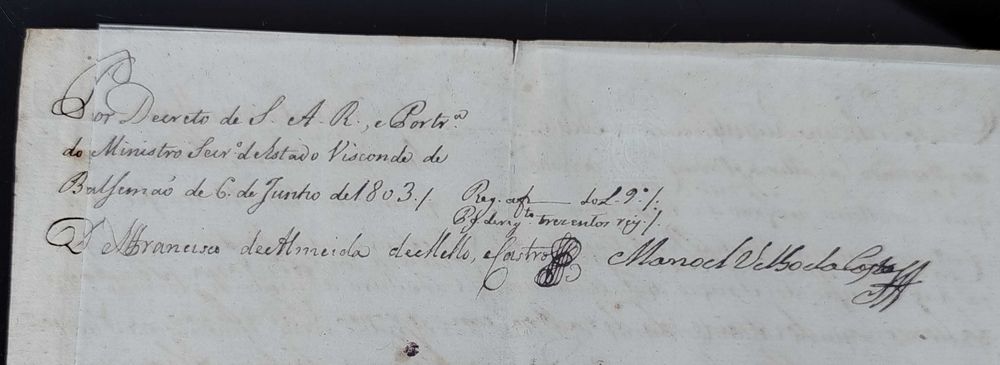 Por Decreto de S. A. R., e Portr.ª
do Ministro Secr.º d'Estado Visconde de
Balsemaõ de 6. de Junho de 1803./.
Reg. a f do L. 9.º/.
Pg. de trezentos reiz/.
D. Francisco de Almeida de Mello, e Castro
Manoel Velho da Costa